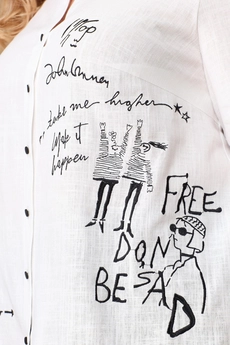 Stop
John Lennon
take me higher
Make it
happen
FREE
DON
BE SAD